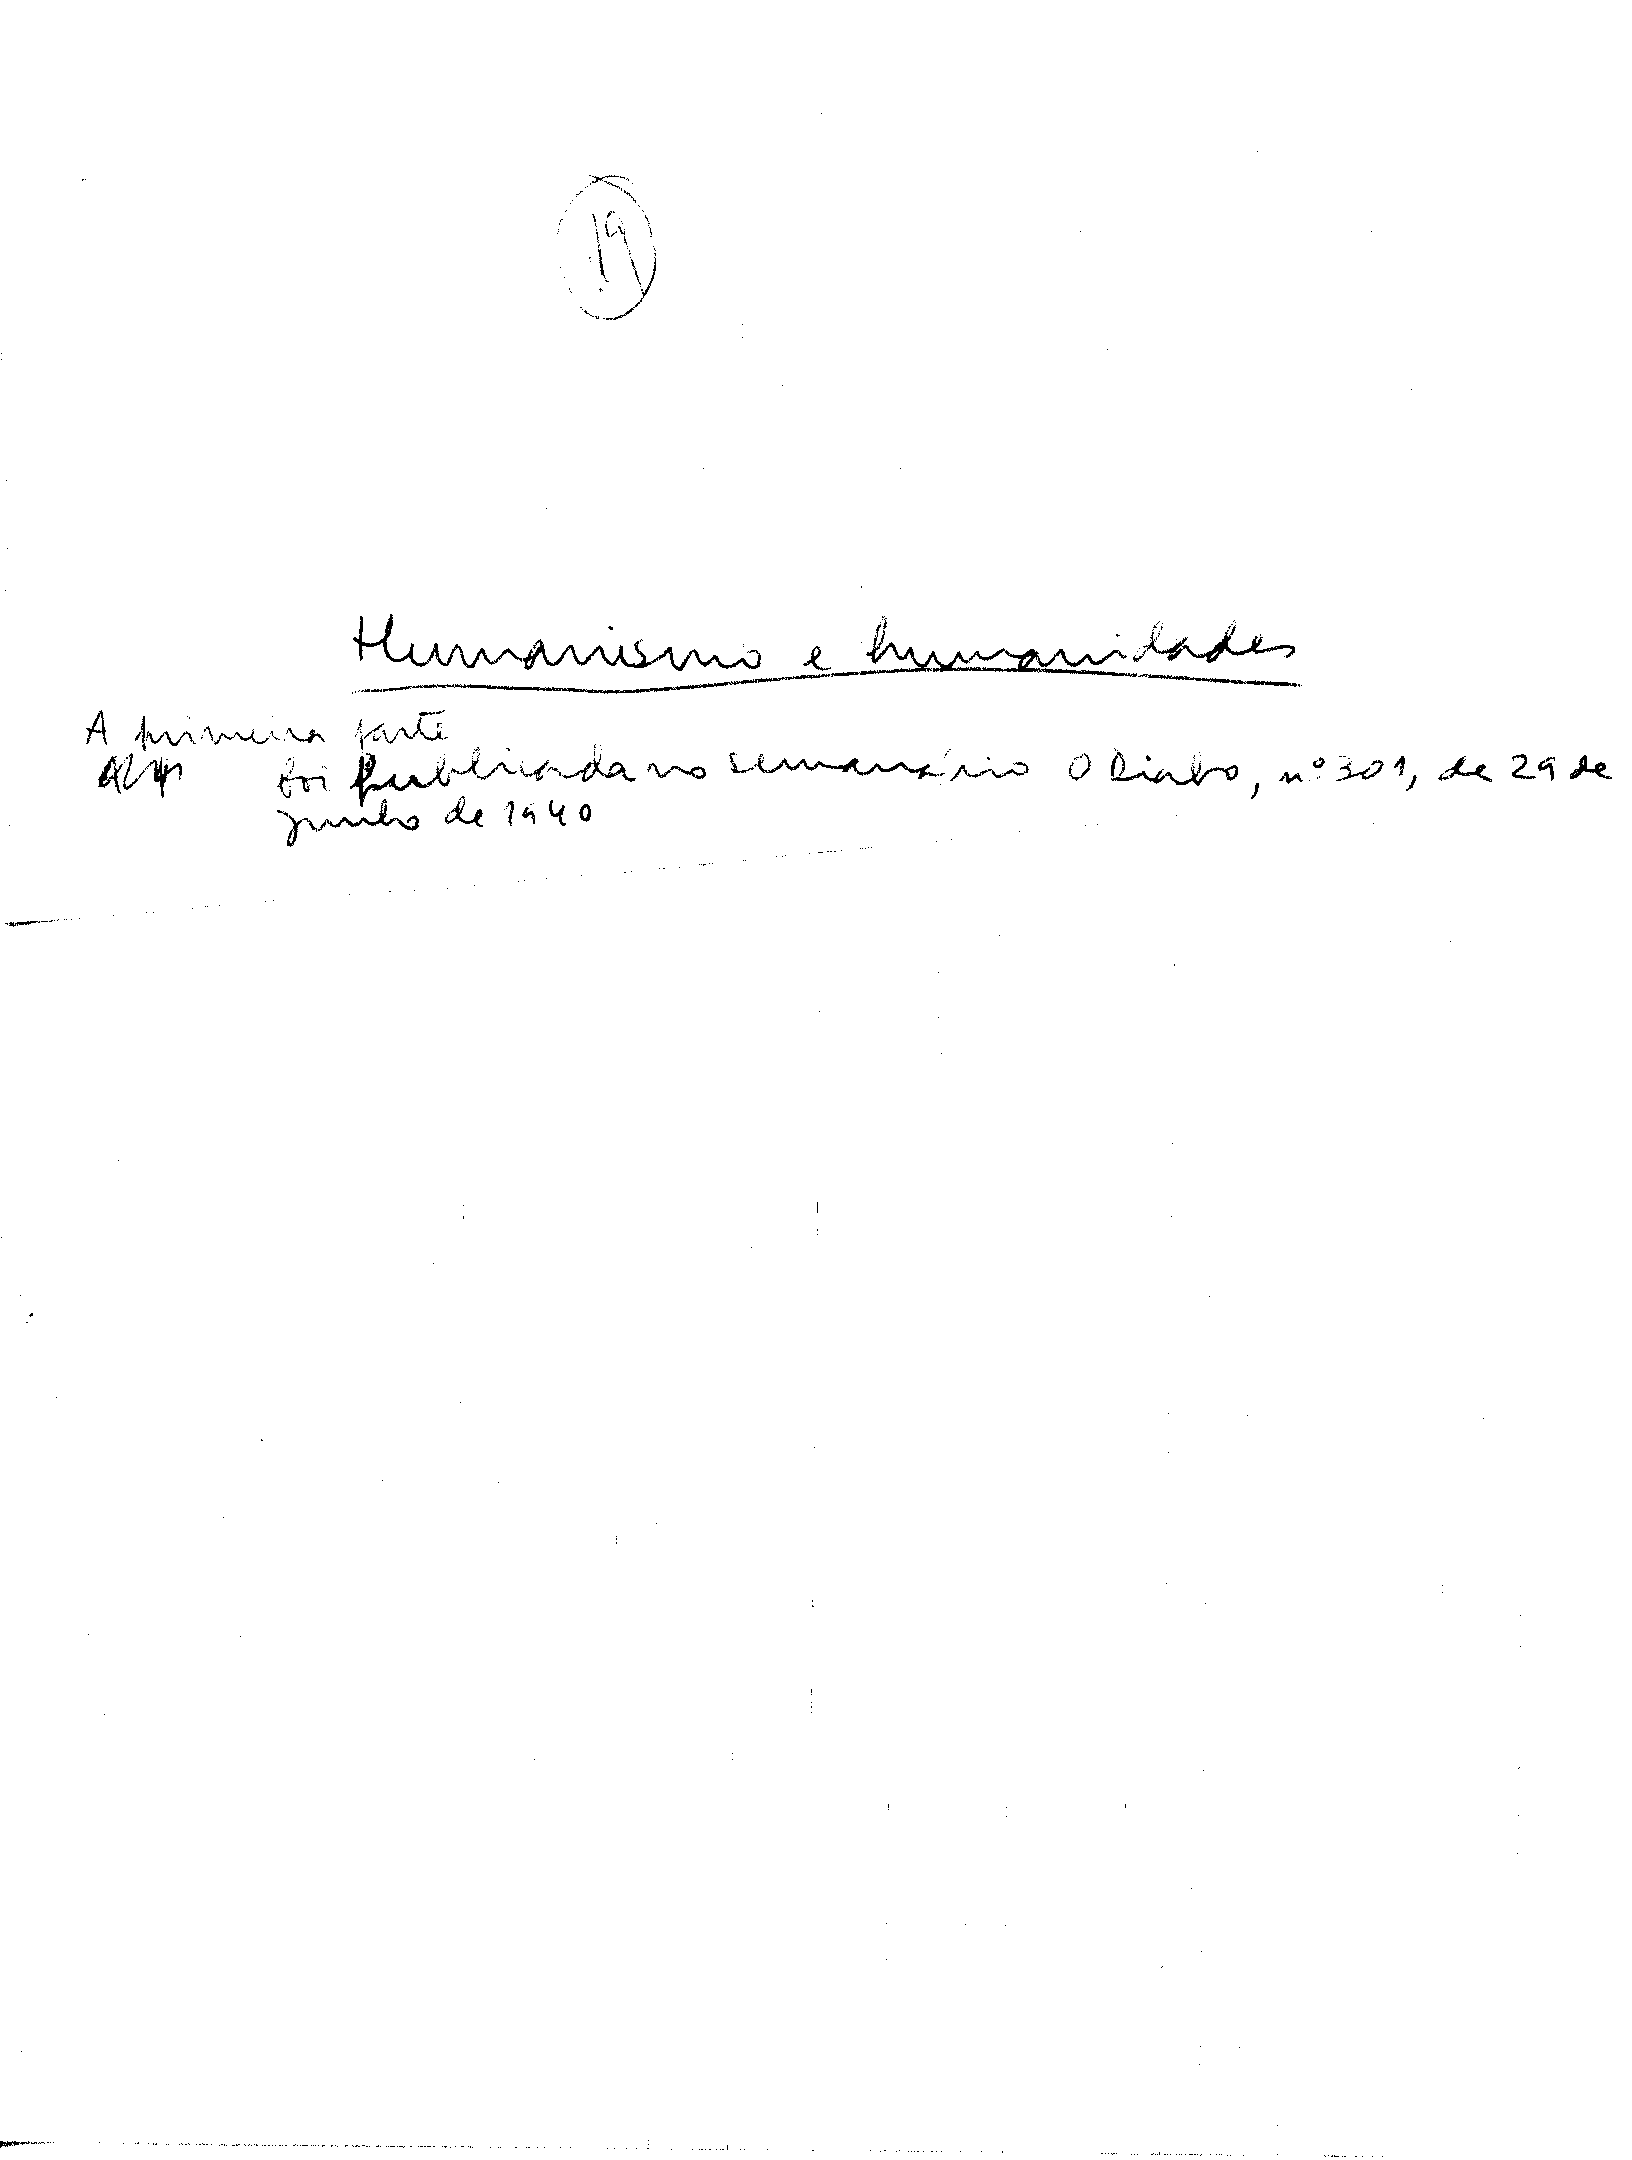 19
Humanismo e humanidades
A primeira parte
foi publicada no semanário O Diabo, nº 301, de 29 de
junho de 1940